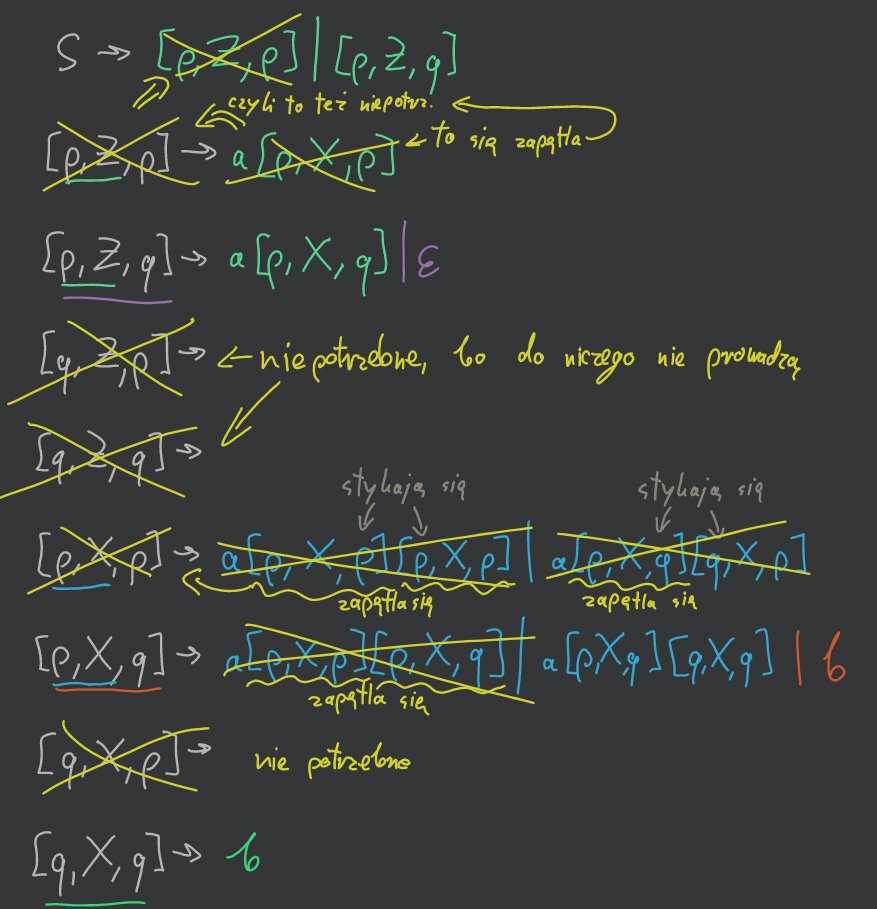 S → [p, Z, p] | [p, Z, q]
czyli to też niepotrz.
[p, Z, p] → a [p, X, p] ← to się zapętla
[p, Z, q] → a [p, X, q] | ε
[q, Z, p] → ← nie potrzebne, bo do niczego nie prowadzą
[q, Z, q] →
stykają się stykają się
[p, X, p] → a [p, X, p][p, X, p] | a [p, X, q][q, X, p]
zapętla się zapętla się
[p, X, q] → a [p, X, p][p, X, q] | a [p, X, q][q, X, q] | b
zapętla się
[q, X, p] → nie potrzebne
[q, X, q] → b